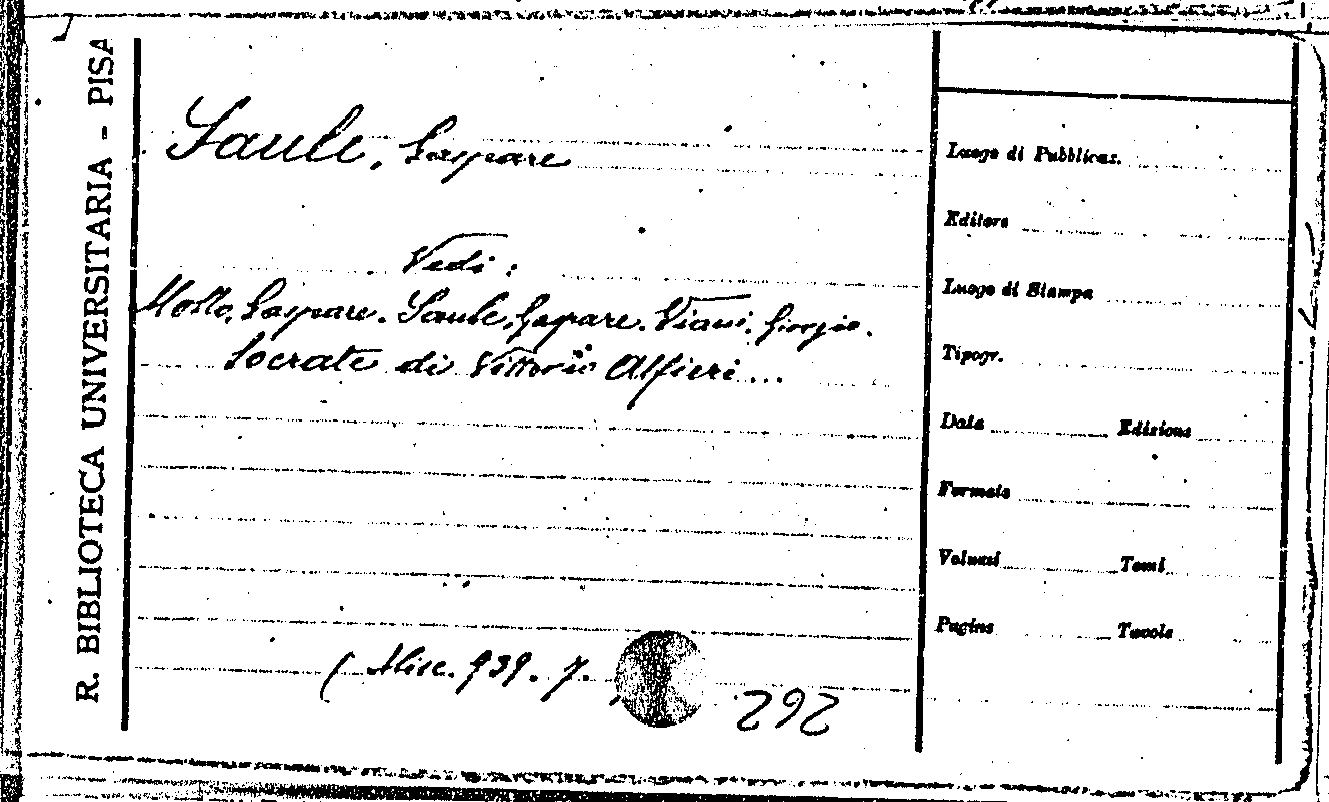 R. BIBLIOTECA UNIVERSITARIA - PISA
Saule, Gaspare
Vedi:
Mollo, Gaspare. Saule, Gaspare. Viani, Giorgio.
Socrate di Vittorio Alfieri...
( Misc. 939. 7.
262
Luogo di Pubblicaz.
Editore
Luogo di Stampa
Tipogr.
Data Edizione
Formato
Volumi Tomi
Pagine Tavole